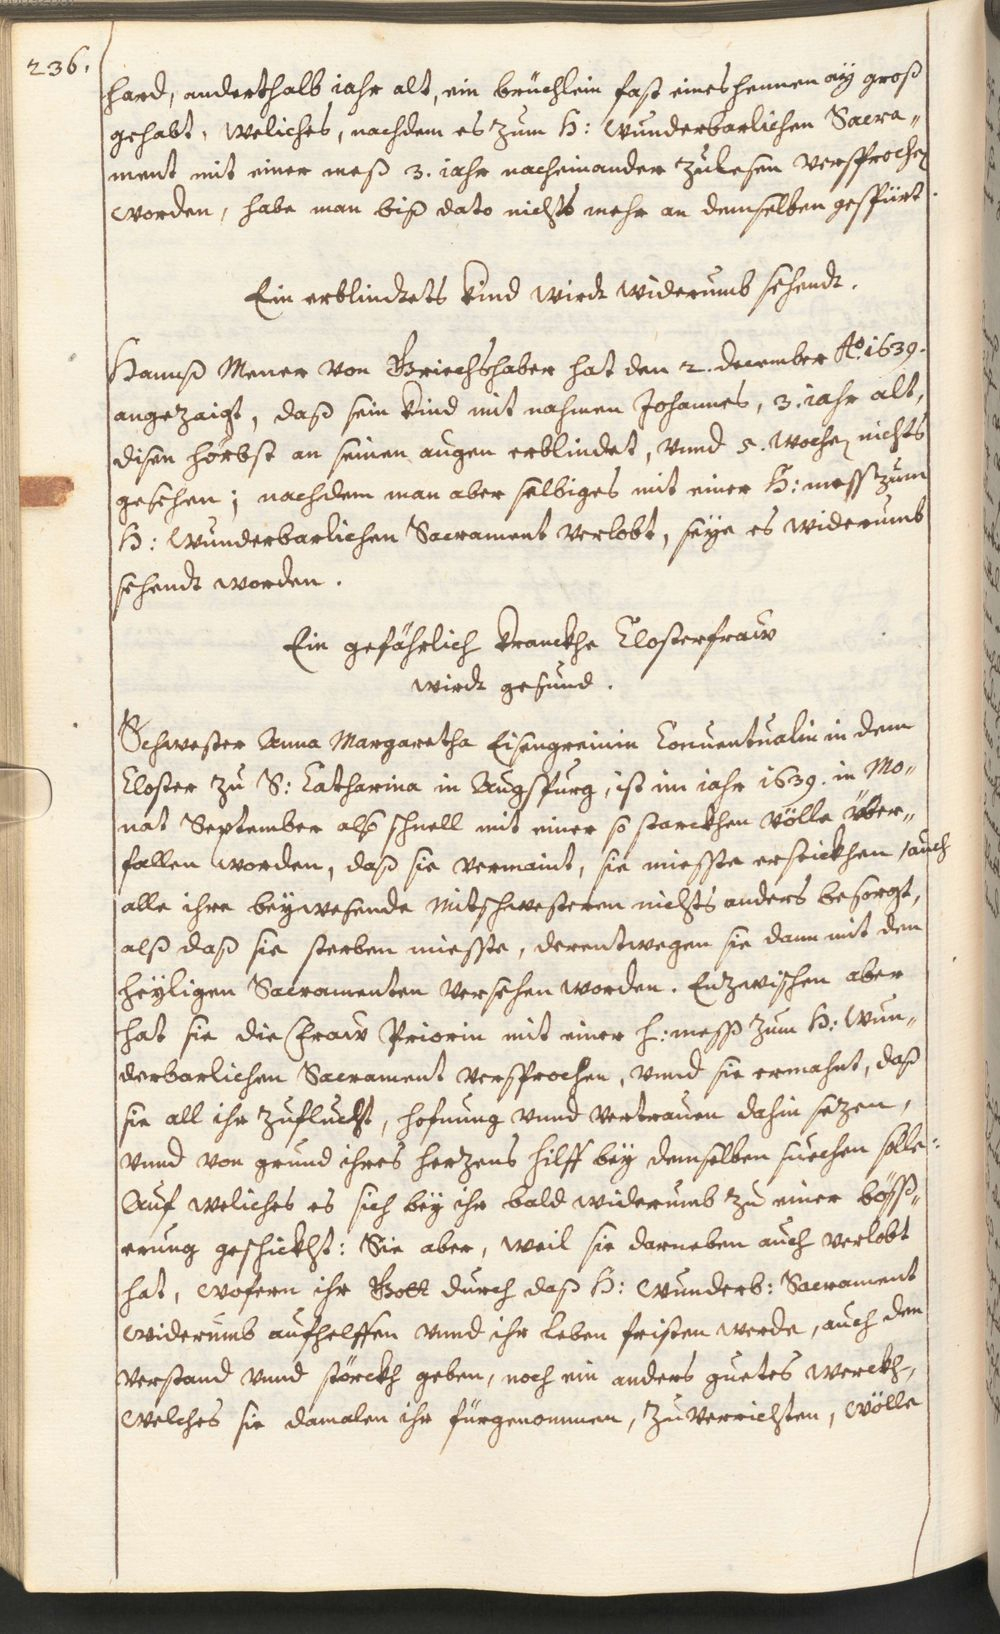 236.
hard, anderthalb iahr alt, ein brüchlein fast eines hennen aÿ groß
gehabt, weliches, nachdem es zum H: Wunderbarlichen Sacra„
ment mit einer meß 3. iahr nacheinander zulesen versprochen
worden, habe man biß dato nichts mehr an demselben gespürt.
Ein erblindtets kind wirdt widerumb sehendt.
Hannß Mener von Griechshaber hat den 2. december Ao. 1639.
angezaigt, daß sein kind mit nahmen Johannes, 3. iahr alt,
disen hörbst an seinen augen erblindet, vnnd 5. wochen nichts
gesehen; nachdem man aber selbiges mit einer H: mess zum
H: Wunderbarlichen Sacrament verlobt, seÿe es widerumb
sehendt worden.
Ein gefährlich kranckhe Closterfraw
wirdt gesund.
Schwester Anna Margaretha Eisengreinin Conuentualin in dem
Closter zu S: Catharina in Augspurg, ist im iahr 1639. in Mo„
nat September also schnell mit einer so starckhen völle über„
fallen worden, daß sie vermaint, sie miesste ersticken, auch
alle ihre beÿwesende mitschwesteren nichts anders besorgt,
alß daß sie sterben miesste, derentwegen sie dann mit den
heÿligen Sacramenten versehen worden. Entzwischen aber
hat sie die Fraw Priorin mit einer h: mess zum H: Wun„
derbarlichen Sacrament versprochen, vnnd sie ermahnt, daß
sie all ihr zuflucht, hofnung vnnd vertrauen dahin setzen,
vnnd von grund ihres hertzens hilff beÿ demselben suechen solle:
Auf weliches es sich beÿ ihr bald widerumb zu einer böss„
erung geschickht: Sie aber, weil sie darneben auch verlobt
hat, wofern ihr Gott durch daß H: Wunderb: Sacrament
widerumb aufhelffen vnnd ihr leben fristen werde, auch den
verstand vnnd störckh geben, noch ein anders guetes werckh,
welches sie damalen ihr fürgenommen, zuverrichten, wölle